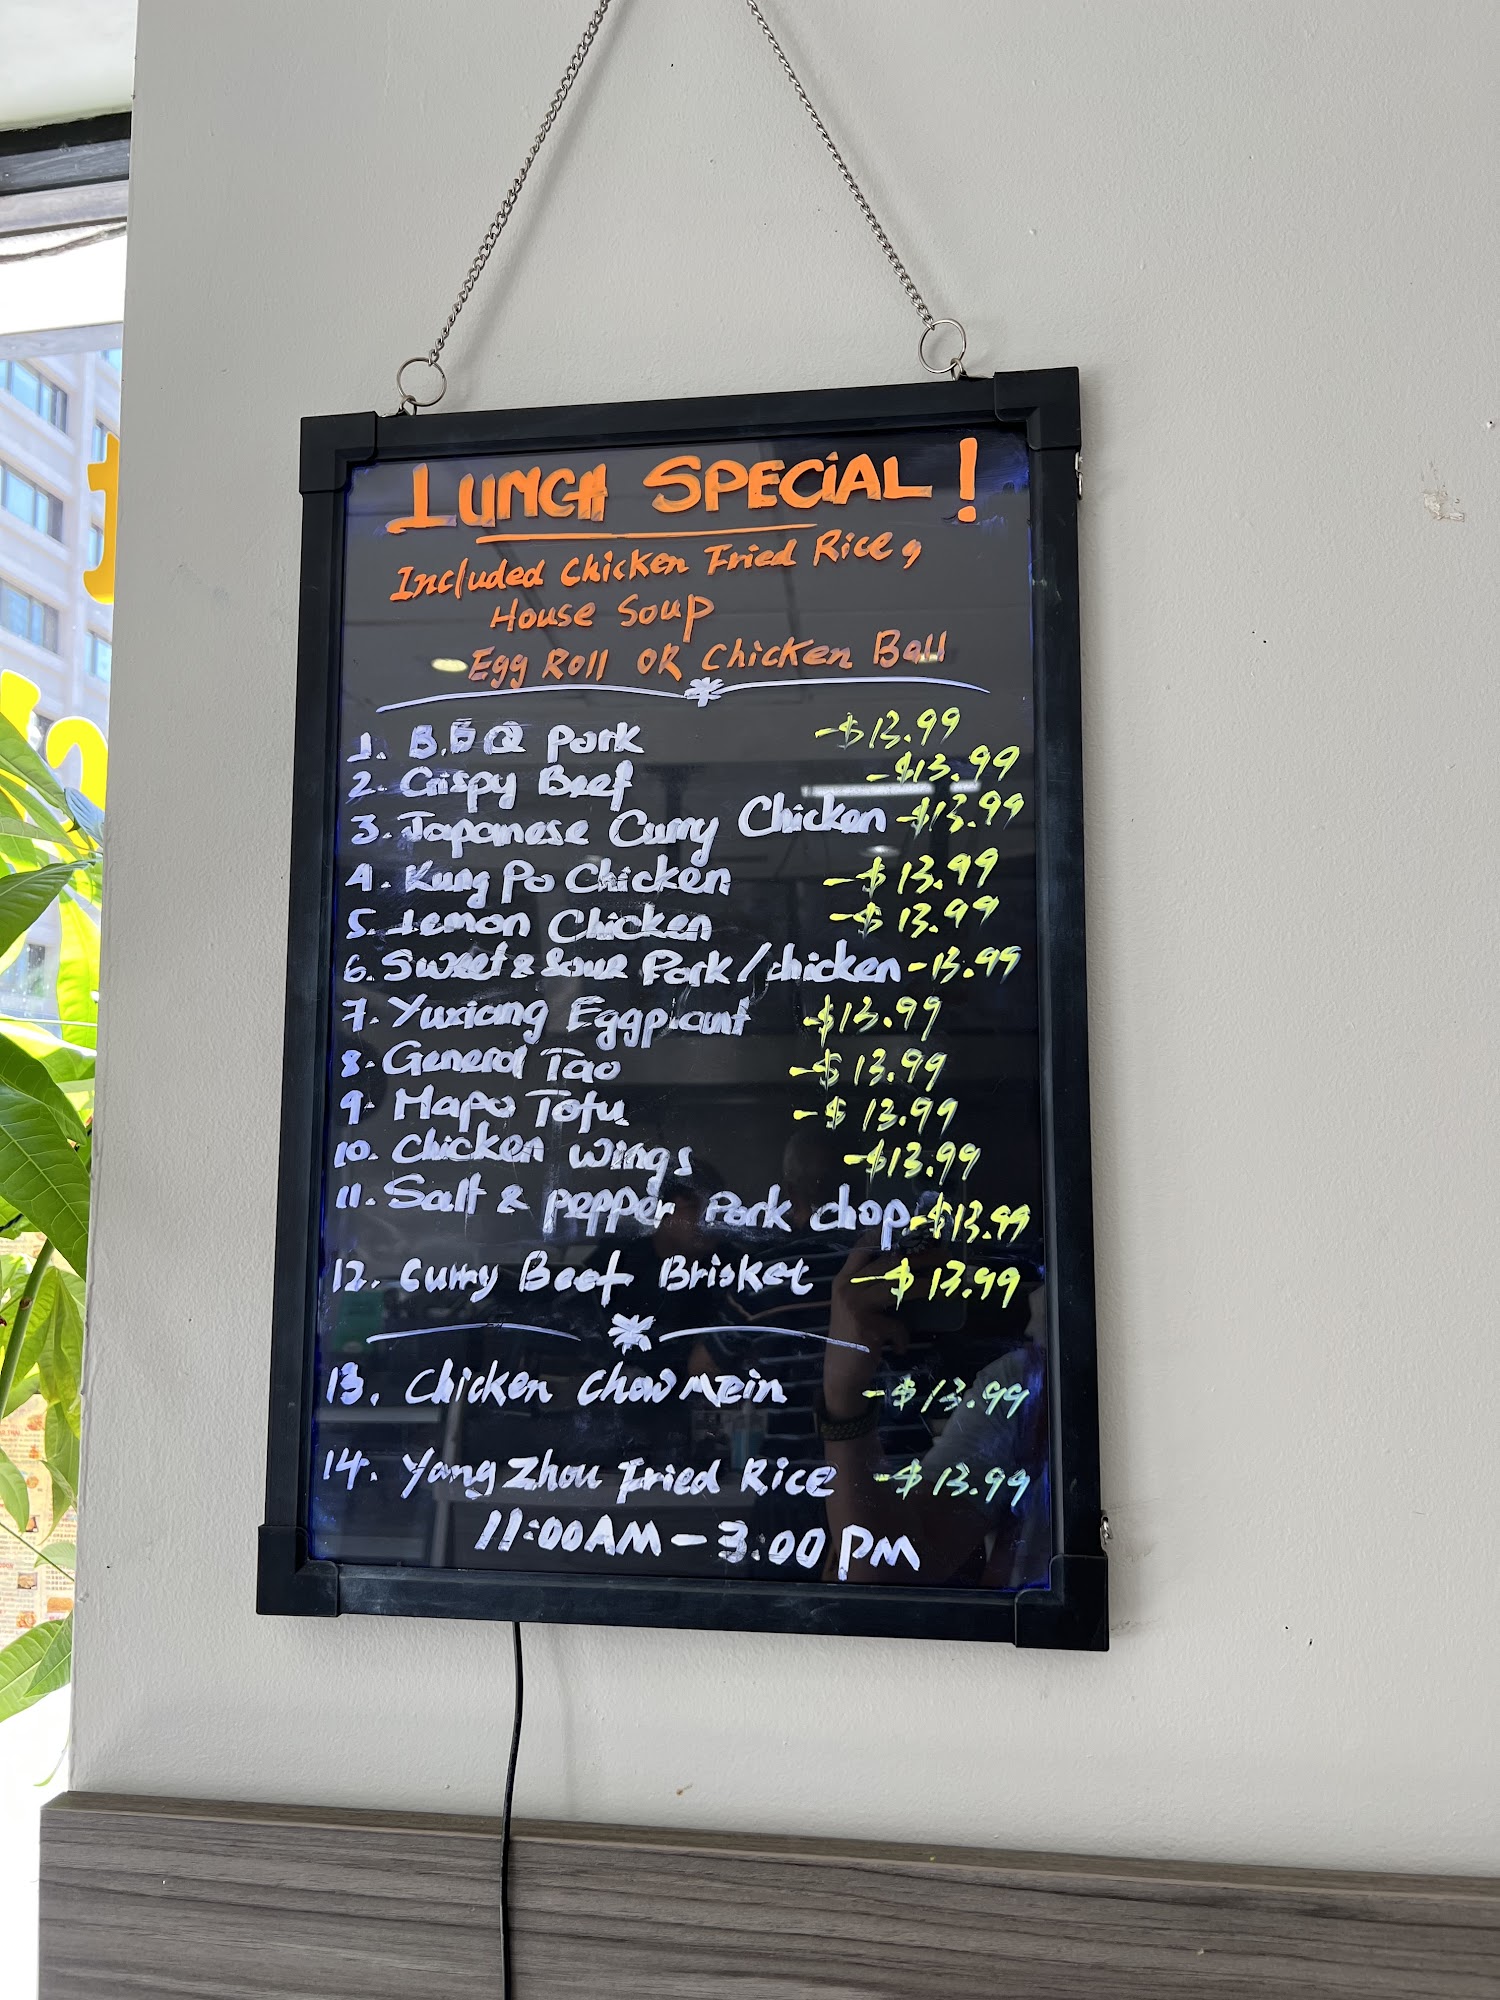 LUNCH SPECIAL!
Included Chicken Fried Rice,
House Soup
Egg Roll OR Chicken Ball
1. B.B Q Pork -$13.99
2. Crispy Beef -$13.99
3. Japanese Curry Chicken -$13.99
4. Kung Po Chicken -$13.99
5. Lemon Chicken -$13.99
6. Sweet & Sour Pork/chicken -13.99
7. Yuxiang Eggplant -$13.99
8. General Tao -$13.99
9. Mapo Tofu -$13.99
10. Chicken wings -$13.99
11. Salt & pepper Pork chop -$13.99
12. Curry Beef Brisket -$13.99
13. Chicken Chow Mein -$13.99
14. Yang Zhou Fried Rice -$13.99
11:00AM - 3:00 PM